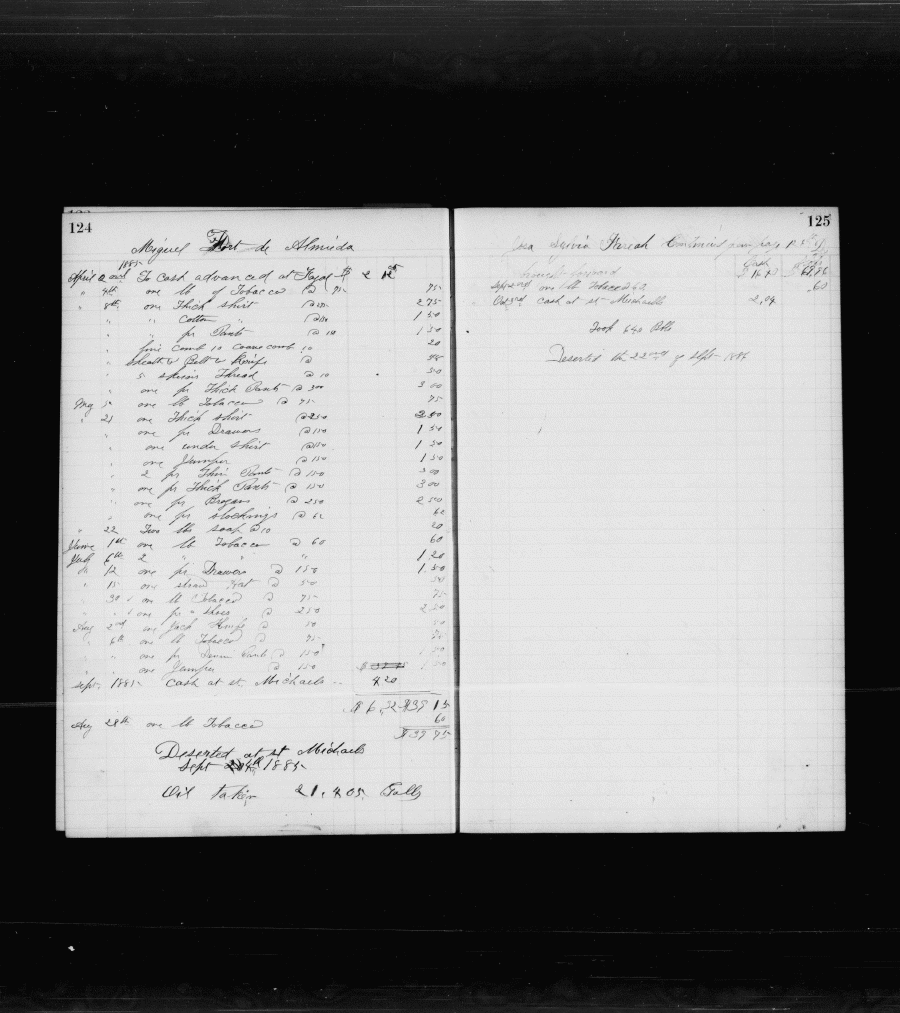 124
Miguel Fort de Almeida
1885
April 2nd To cash advanced at Fayal $ 2 12
" 4th one lb of Tobacco @ 75 75
" 8th one Thick shirt 2 75
" " Cotton " 1 50
" " pr Pants 1 50
" fine comb 10 coarse comb 10 20
" Sheath & Belt & Knife @ 45
" 5 skeins Thread @ 10 50
" one pr Thick Pants @ 300 3 00
May 5 one lb Tobacco @ 75 75
" 21 one Thick shirt @ 250 2 50
" one pr Drawers @ 150 1 50
" one under shirt @ 150 1 50
" one Jumper @ 150 1 50
" 2 pr Thin Pants @ 150 3 00
" one pr Thick Pants @ 150 3 00
" one pr Brogans @ 250 2 50
" one pr stockings @ 62 62
" 22 Two lbs soap @ 10 20
June 1st one lb Tobacco @ 60 60
July 6th 2 " " " 1 20
" 12 one pr Drawers @ 150 1 50
" 15 one straw Hat @ 50 50
" 30 one lb Tobacco @ 75 75
" " one pr " shoes @ 250 2 50
Aug 2nd one Jack Knife @ 50 50
" 6th one lb Tobacco @ 75 75
" " one pr Pants @ 150 1 50
" " one Jumper @ 150 1 50
Sept. 1885 Cash at st. Michaels 4 20
$ 6,32 $39 15
Aug 28th one lb Tobacco 60
$39 75
Deserted at st Michaels
Sept 4th 1885
Oil taken 21,405 Galls
125
Continued from page
Cash
brought forward
Sept 2nd one lb Tobacco 62 60
Oct 3rd Cash at st Michaels 2,04
Took 640 Bbls
Deserted the 22nd of Sept 1886